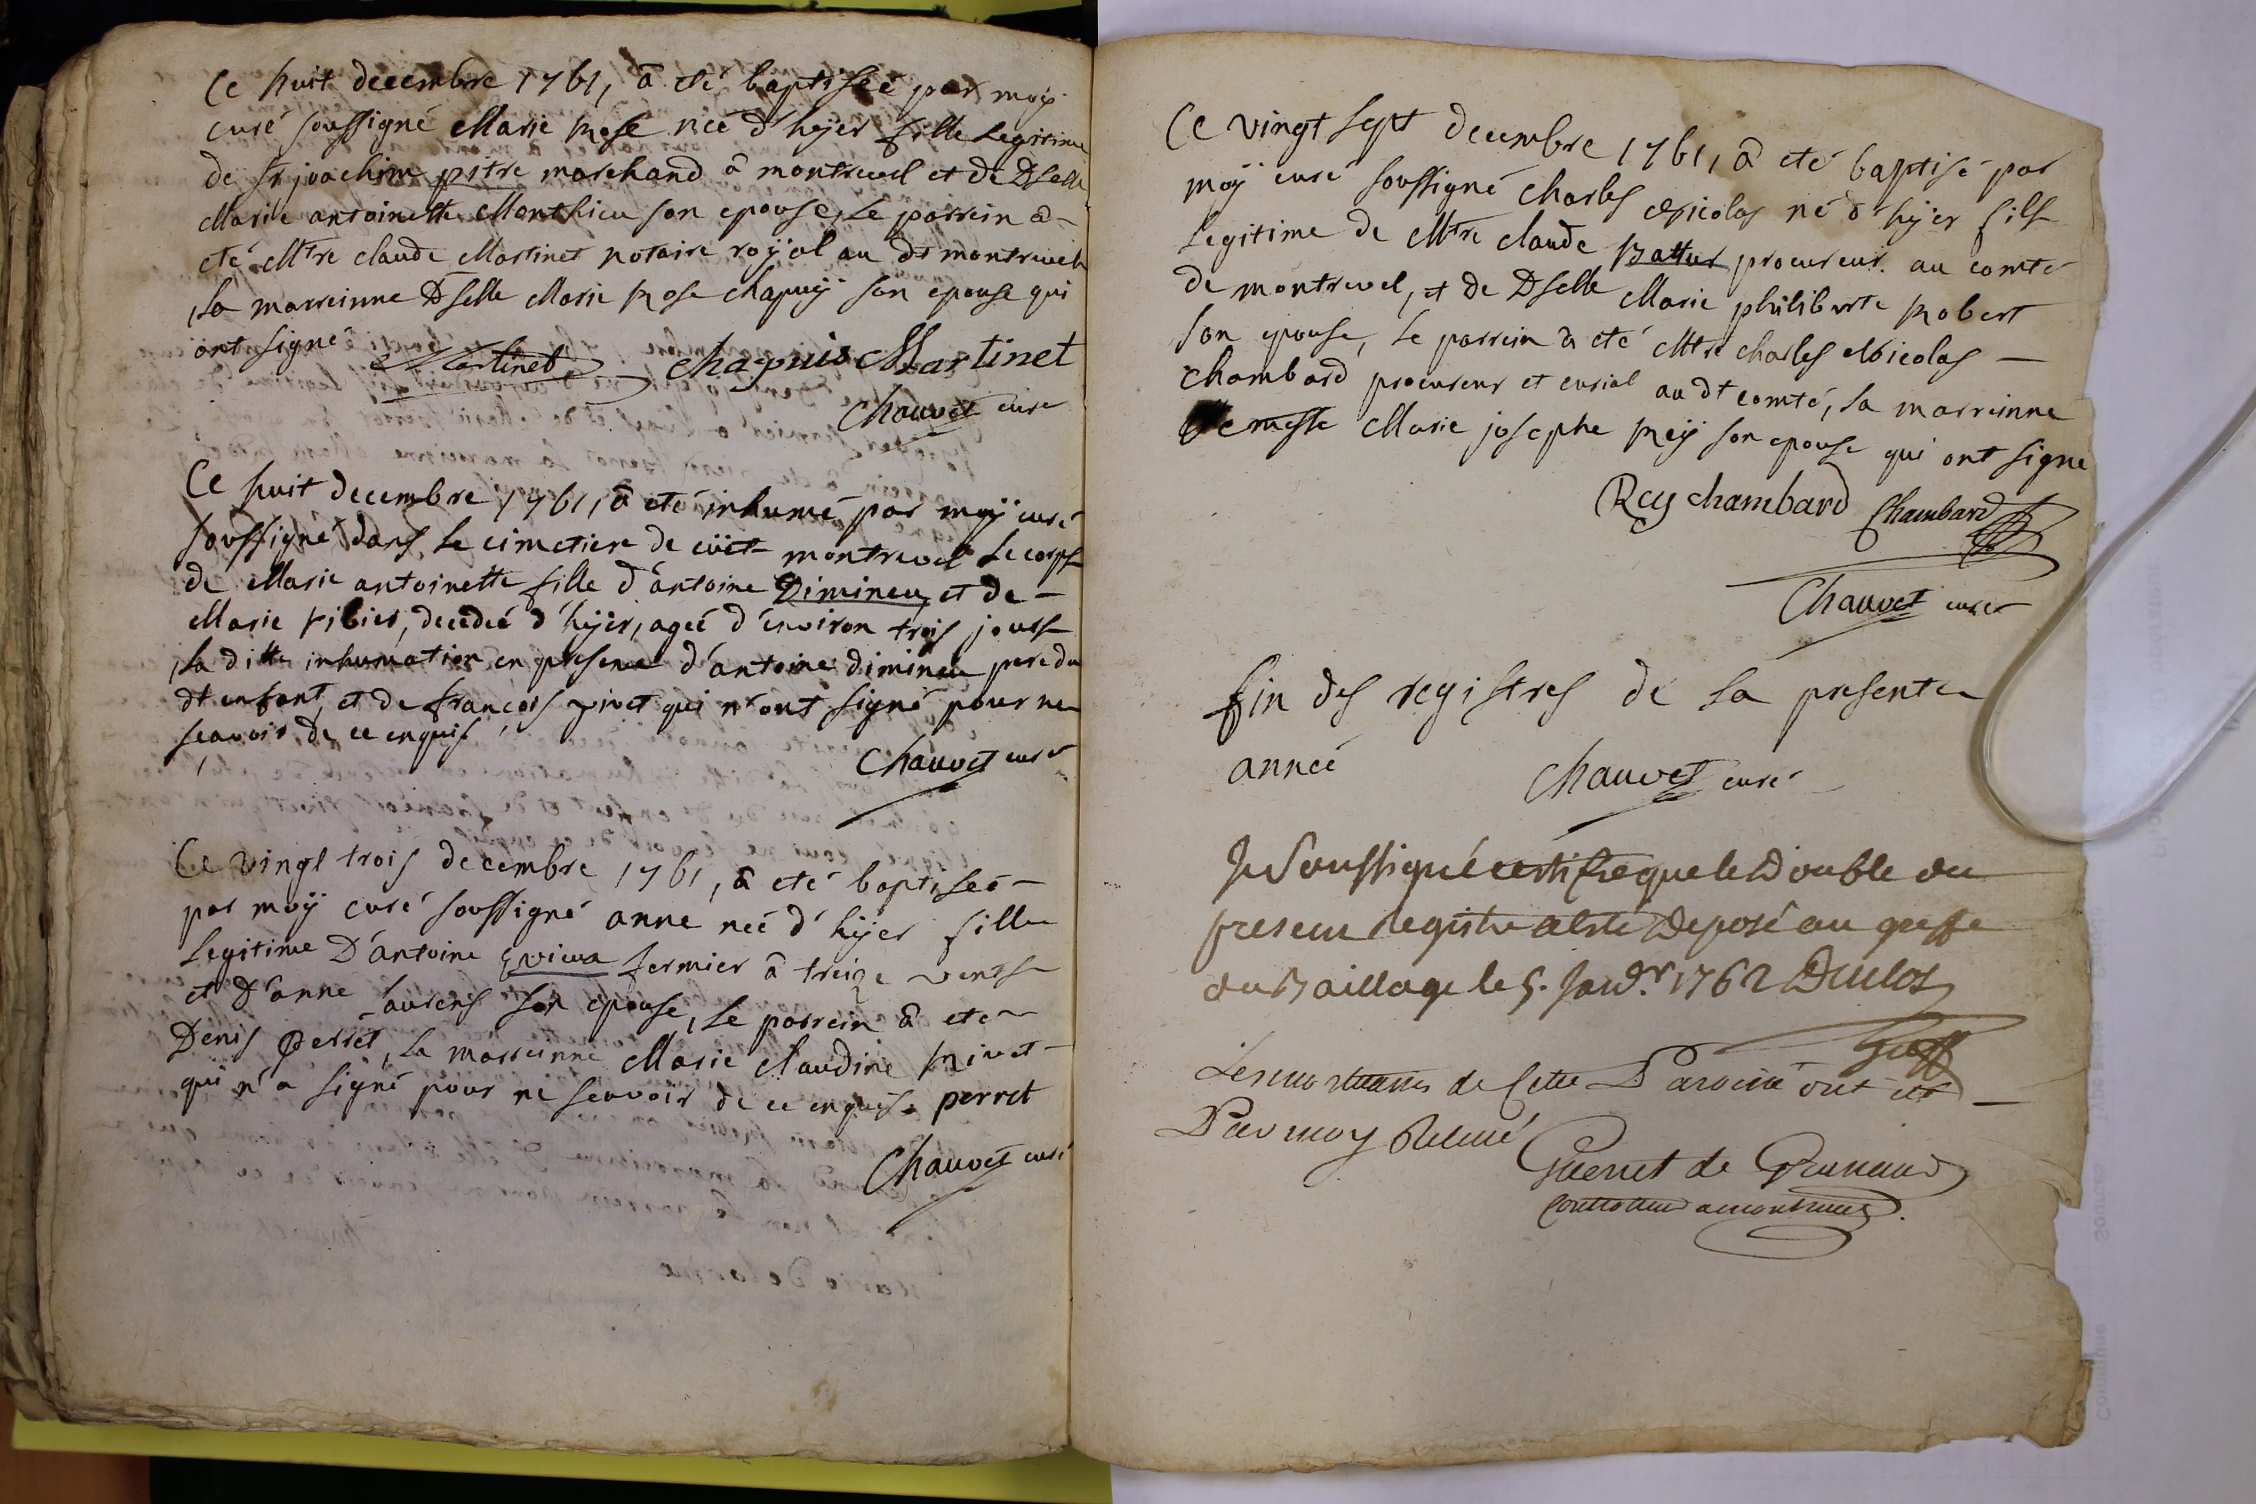 Ce huit decembre 1761, â eté baptisée par moÿ
curé soussigné Marie Rose née d'hÿer fille legitime
de Sr joachim pitre marchand â montrevel et de Dselle
Marie antoinette Monthieu son epouse, Le parrein â
eté Mtre claude Martinet notaire roÿal au dt montrevel
La marreinne Dselle Marie Rose chapuÿ son epouse qui
ont signé
Martinet chapuis Martinet
Chauvet curé
Ce huit decembre 1761, â eté inhumé par moÿ curé
soussigné dans le cimetiere de cüet montrevel le corps
de Marie antoinette fille d'antoine Dimineu et de
Marie, decedeé d'hÿer, ageé d'environ trois jours
La ditte inhumation en presence d'antoine dimineu pere du
dt enfant, et de francois pivet qui n'ont signé pour ne
scavoir de ce enquis
Chauvet curé
Ce vingt trois decembre 1761, â eté baptiseé
par moÿ curé soussigné anne neé d'hÿer fille
Legitime D'antoine fermier â treize vents
et D'anne laurens son epouse, Le parrein â eté
Denis perret, La marreinne Marie Claudine
qui n'a signé pour ne scavoir de ce enquise perret
Chauvet curé
Ce vingt sept decembre 1761, â eté baptisé par
moÿ curé soussigné charles Nicolas né d'hÿer fils
Legitime de Mtre claude Battur procureur au comté
de montrevel, et de Dselle Marie philiberte Robert
son epouse, Le parrein a eté Mtre charles Nicolas
chambard procureur et curial au dt comté, La marreinne
Marie josephe Reÿ son epouse qui ont signé
Rey chambard Chambard
Chauvet curé
fin des registres de La presente
anneé
Chauvet curé
Je Soussigné certifie que le Double du
present Registre a été Deposé au greffe
du Baillage le 5. Janv.r 1762 Duclos
Greff
Les mortuaires de Cette Paroisse ont été
Par moy Relevé
Guerret de Grannaud
Controlleur a montrevel